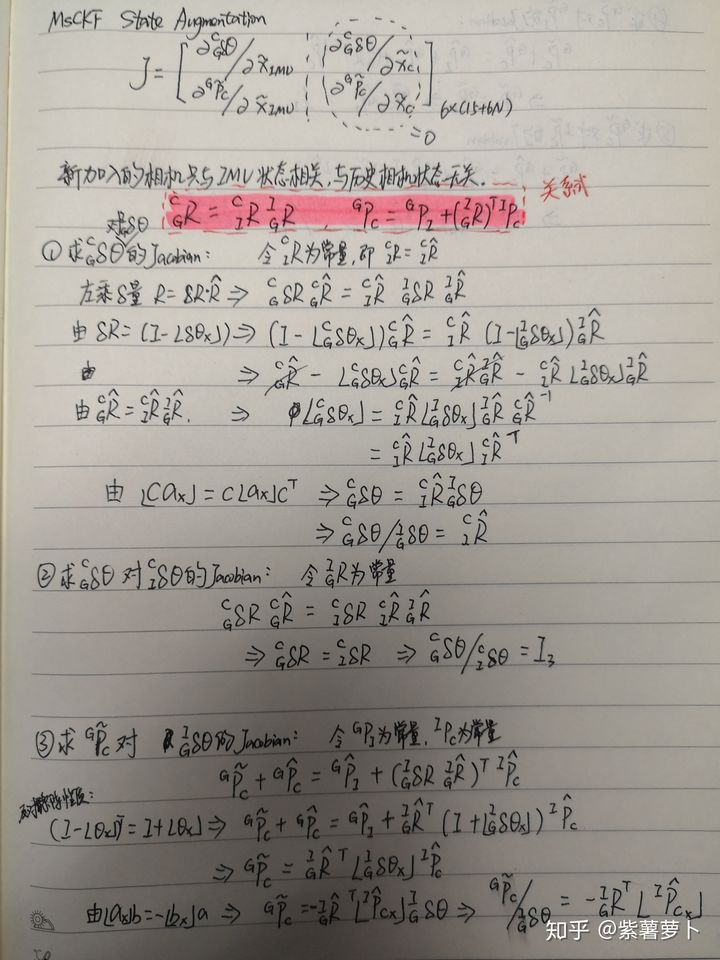 MSCKF State Augmentation
J = [ ∂ᶜ_Gδθ/∂x̃_IMU  ∂ᶜ_Gδθ/∂x̃_C
∂ᴳP̃_C/∂x̃_IMU  ∂ᴳP̃_C/∂x̃_C ] 6×(15+6N)
=0
新加入的相机只与IMU状态相关,与历史相机状态无关.
ᶜ_GR = ᶜ_IR ᴵ_GR , ᴳP_C = ᴳP_I + (ᴵ_GR)ᵀ ᴵP_C 关系式
① 求ᶜ_Gδθ 的Jacobian: 令ᶜ_IR为常量,即 ᶜ_IR = ᶜ_IR̂
左乘δ量 R = δR·R̂ ⇒ ᶜ_GδR ᶜ_GR̂ = ᶜ_IR̂ ᴵ_GδR ᴵ_GR̂
由 δR = (I-⌊δθ×⌋) ⇒ (I-⌊ᶜ_Gδθ×⌋)ᶜ_GR̂ = ᶜ_IR̂ (I-⌊ᴵ_Gδθ×⌋)ᴵ_GR̂
⇒ ᶜ_GR̂ - ⌊ᶜ_Gδθ×⌋ᶜ_GR̂ = ᶜ_IR̂ ᴵ_GR̂ - ᶜ_IR̂ ⌊ᴵ_Gδθ×⌋ᴵ_GR̂
由 ᶜ_GR̂ = ᶜ_IR̂ ᴵ_GR̂. ⇒ ⌊ᶜ_Gδθ×⌋ = ᶜ_IR̂ ⌊ᴵ_Gδθ×⌋ ᴵ_GR̂ ᶜ_GR̂⁻¹
= ᶜ_IR̂ ⌊ᴵ_Gδθ×⌋ ᶜ_IR̂ᵀ
由 ⌊Ca×⌋ = C⌊a×⌋Cᵀ ⇒ ᶜ_Gδθ = ᶜ_IR̂ ᴵ_Gδθ
⇒ ᶜ_Gδθ/ᴵ_Gδθ = ᶜ_IR̂
② 求ᶜ_Gδθ 对 ᶜ_Iδθ的Jacobian: 令 ᴵ_GR为常量
ᶜ_GδR ᶜ_GR̂ = ᶜ_IδR ᶜ_IR̂ ᴵ_GR̂
⇒ ᶜ_GδR = ᶜ_IδR ⇒ ᶜ_Gδθ/ᶜ_Iδθ = I₃
③ 求 ᴳP̃_C 对 ᴵ_Gδθ的Jacobian: 令ᴳP_I为常量, ᴵP_C为常量
ᴳP̃_C + ᴳP̂_C = ᴳP̂_I + (ᴵ_GδR ᴵ_GR̂)ᵀ ᴵP̂_C
(I-⌊θ×⌋)ᵀ = I+⌊θ×⌋ ⇒ ᴳP̃_C + ᴳP̂_C = ᴳP̂_I + ᴵ_GR̂ᵀ (I+⌊ᴵ_Gδθ×⌋) ᴵP̂_C
⇒ ᴳP̃_C = ᴵ_GR̂ᵀ ⌊ᴵ_Gδθ×⌋ ᴵP̂_C
由⌊a×⌋b = -⌊b×⌋a ⇒ ᴳP̃_C = -ᴵ_GR̂ᵀ ⌊ᴵP̂_C×⌋ ᴵ_Gδθ ⇒ ᴳP̃_C/ᴵ_Gδθ = -ᴵ_GR̂ᵀ ⌊ᴵP̂_C×⌋
知乎 @紫薯萝卜